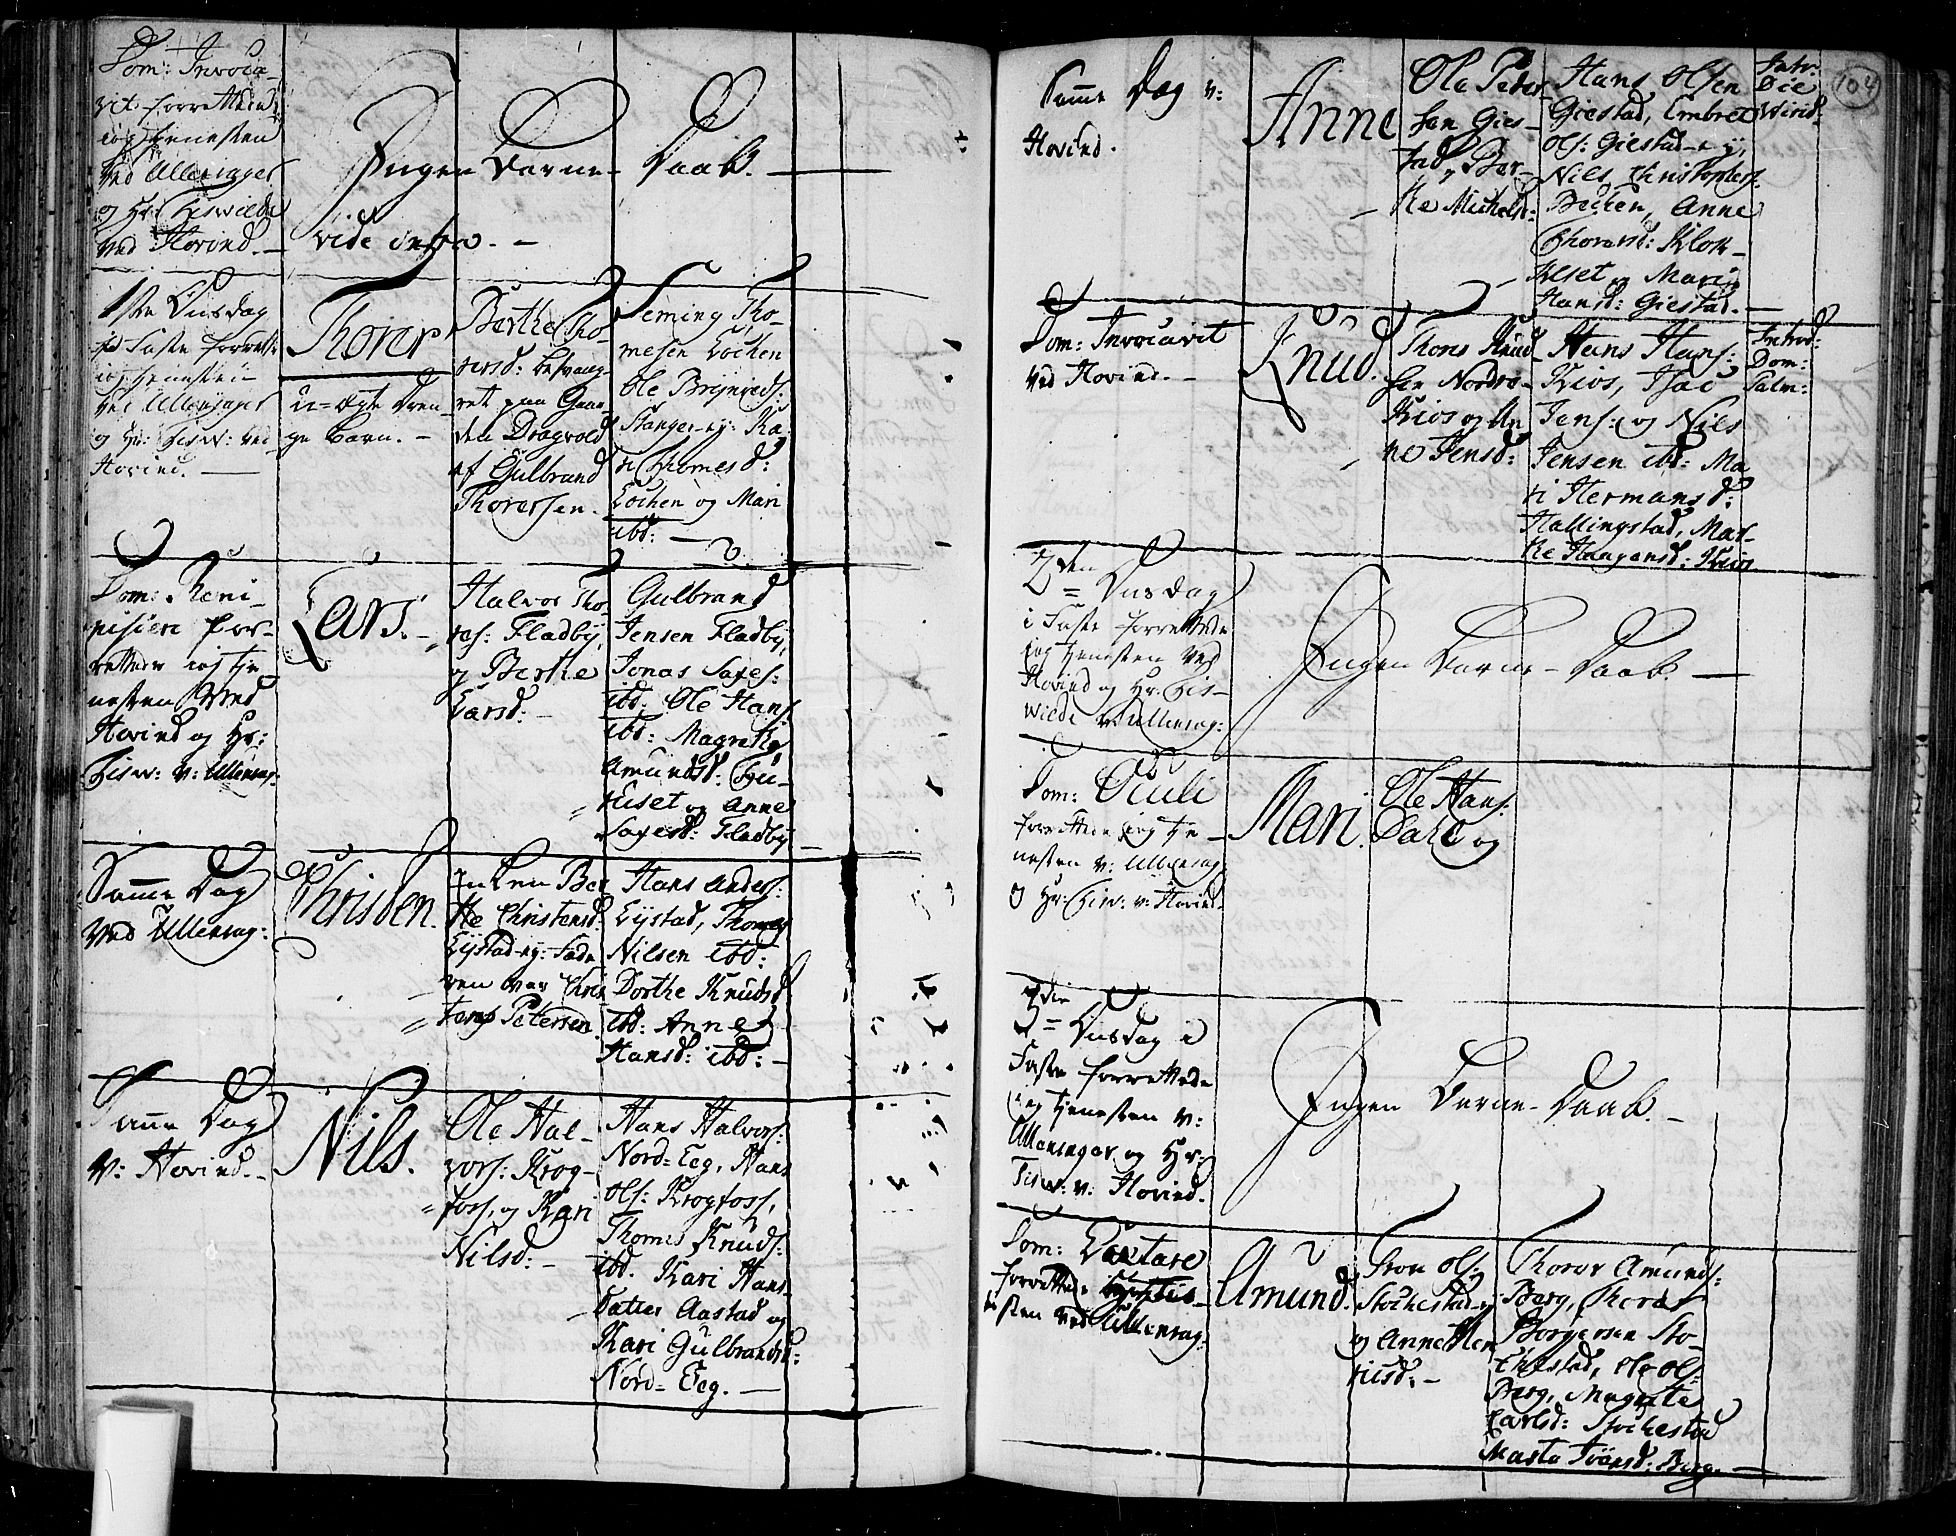 Dom: Invoca-
vit forrettede
ieg tienesten
ved Ullensager
og Hr: Hiswilde
ved Hovind. -
Ingen Barne- Daab. -
vide infra. -
1ste Onsdag
i Faste forrette
ieg tienesten
ved Ullensager
og Hr: Hisw: ved
Hovind. -
Thorer
u=ægte Dren-
ge barn. -
Berthe Tho-
rersd: besvang-
ret paa Gaar-
den Dragvold
af Gulbrand
Thorersen.
Feming Tho-
mesen Lochen
Ole Brynyeds:
Stanger-ey: Ka-
ri Thomesd:
Lochen og Mari
ibd: -
Dom: Remi-
niscere for-
rettede ieg tie
nesten Ved
Hovind og Hr:
Hisw: v: Ullensag:
Lars. -
Halvor Tho-
res: Fladby,
og Berthe
Larsd: -
Gulbrand
Jensen Fladby,
Jonas Saxes:
ibd: Ole Hans:
ibd: Magrethe
Amundsd:
riset og Anne
Saxesd: Fladby
Samme Dag
Ved Ullensag:
Christen.
Enken Ber
the Christensd:
Lystad-ey: Fade
ren var Chris
tens Petersen
Hans Anders:
Lystad, Thomas
Nilsen ibd:
Dorthe Knudsd
ibd: Anne
Hansd: ibd: -
Samme Dag
v: Hovind. -
Nils.
Ole Hal-
vors: Krog-
foss, og Kari
Nilsd: -
Hans Halvors:
Nord= Eeg, Hans
Ols: Krogfoss,
Thomes Knuds:
ibd. Kari Hans-
Datter Aastad og
Kari Gulbrandsd:
Nord= Eeg. -
104
Samme Dag v:
Hovind.
Anne
Ole Peder-
sen Gies-
tad, og Ber-
the Michelsd:
Hans Olsen
Giestad, Embret
Ols: Giestad-ey,
Nils Christophers:
Bechen, Anne
Thorersd: Klok-
keset og Mari
Hansd: Giestad. -
Intr:
Die
Virid.
Dom: Invocavit
ved Hovind. -
Knud.
Thores Knud
sen Nordre-
Kios og An
ne Jensd:
Hans Hans:
Kios, Isac
Jens: og Nils
Jensen ibd: Ma
ri Hermansd:
Hallingstad, Mar-
the Haagensd: Kios
Introd:
Dom:
Palm:
2den Onsdag
i Faste forrettede
ieg tienesten ved
Hovind og Hr: His-
wilde v: Ullensag:
Ingen Barne- Daab. -
Dom: Oculi
forrettede ieg tie-
nesten v: Ullensag:
og Hr: Hisw: v: Hovind.
Mari.
Ole Hans:
Dahl og
3die Onsdag i
Faste forrettede
ieg tienesten v:
Ullensager og Hr:
Hisw: v: Hovind.
Ingen Barne- Daab. -
Dom: Lætare
forrettede
nesten ved Ullensag:
Amund.
Iver Ols:
Stochestad-ey
og Anne Hen
richsd: -
Thorer Amunds:
Berg, Thorer
Borgersen Sto-
chestad, Ole Ols:
Berg, Magrete
Carlsd: Stochestad
Marte Ivarsd: Berg. -